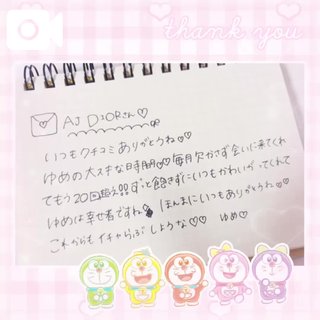 thank you
AJ DIORさん♡
いつもクチコミありがとうね♡
ゆめの大スキな時間♡毎月欠かさず会いに来てくれ
てもう20回超え!!ずっと飽きずにいつもかわいがってくれて
ゆめは幸せ者ですね ほんまにいつもありがとうね♡
これからもイチャらぶしようね♡♡ ゆめ♡